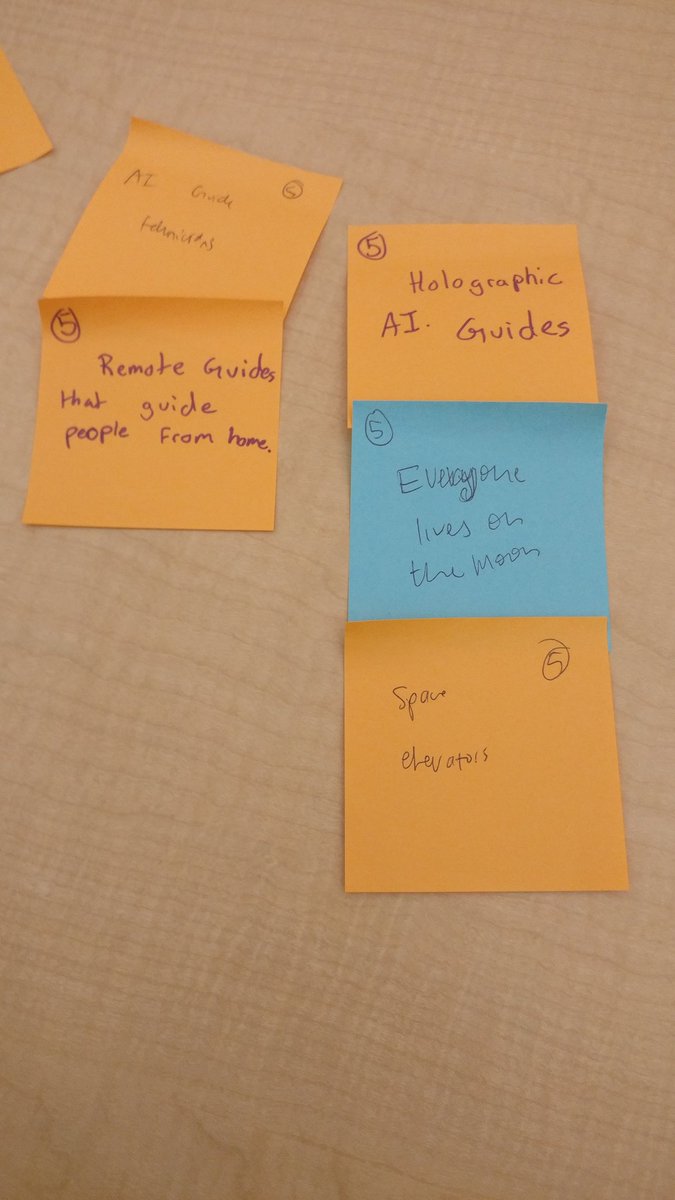 AI Guide 5
technicians
5
Remote Guides
that guide
people from home.
5
Holographic
AI. Guides
5
Everyone
lives on
the moon
5
Space
elevators